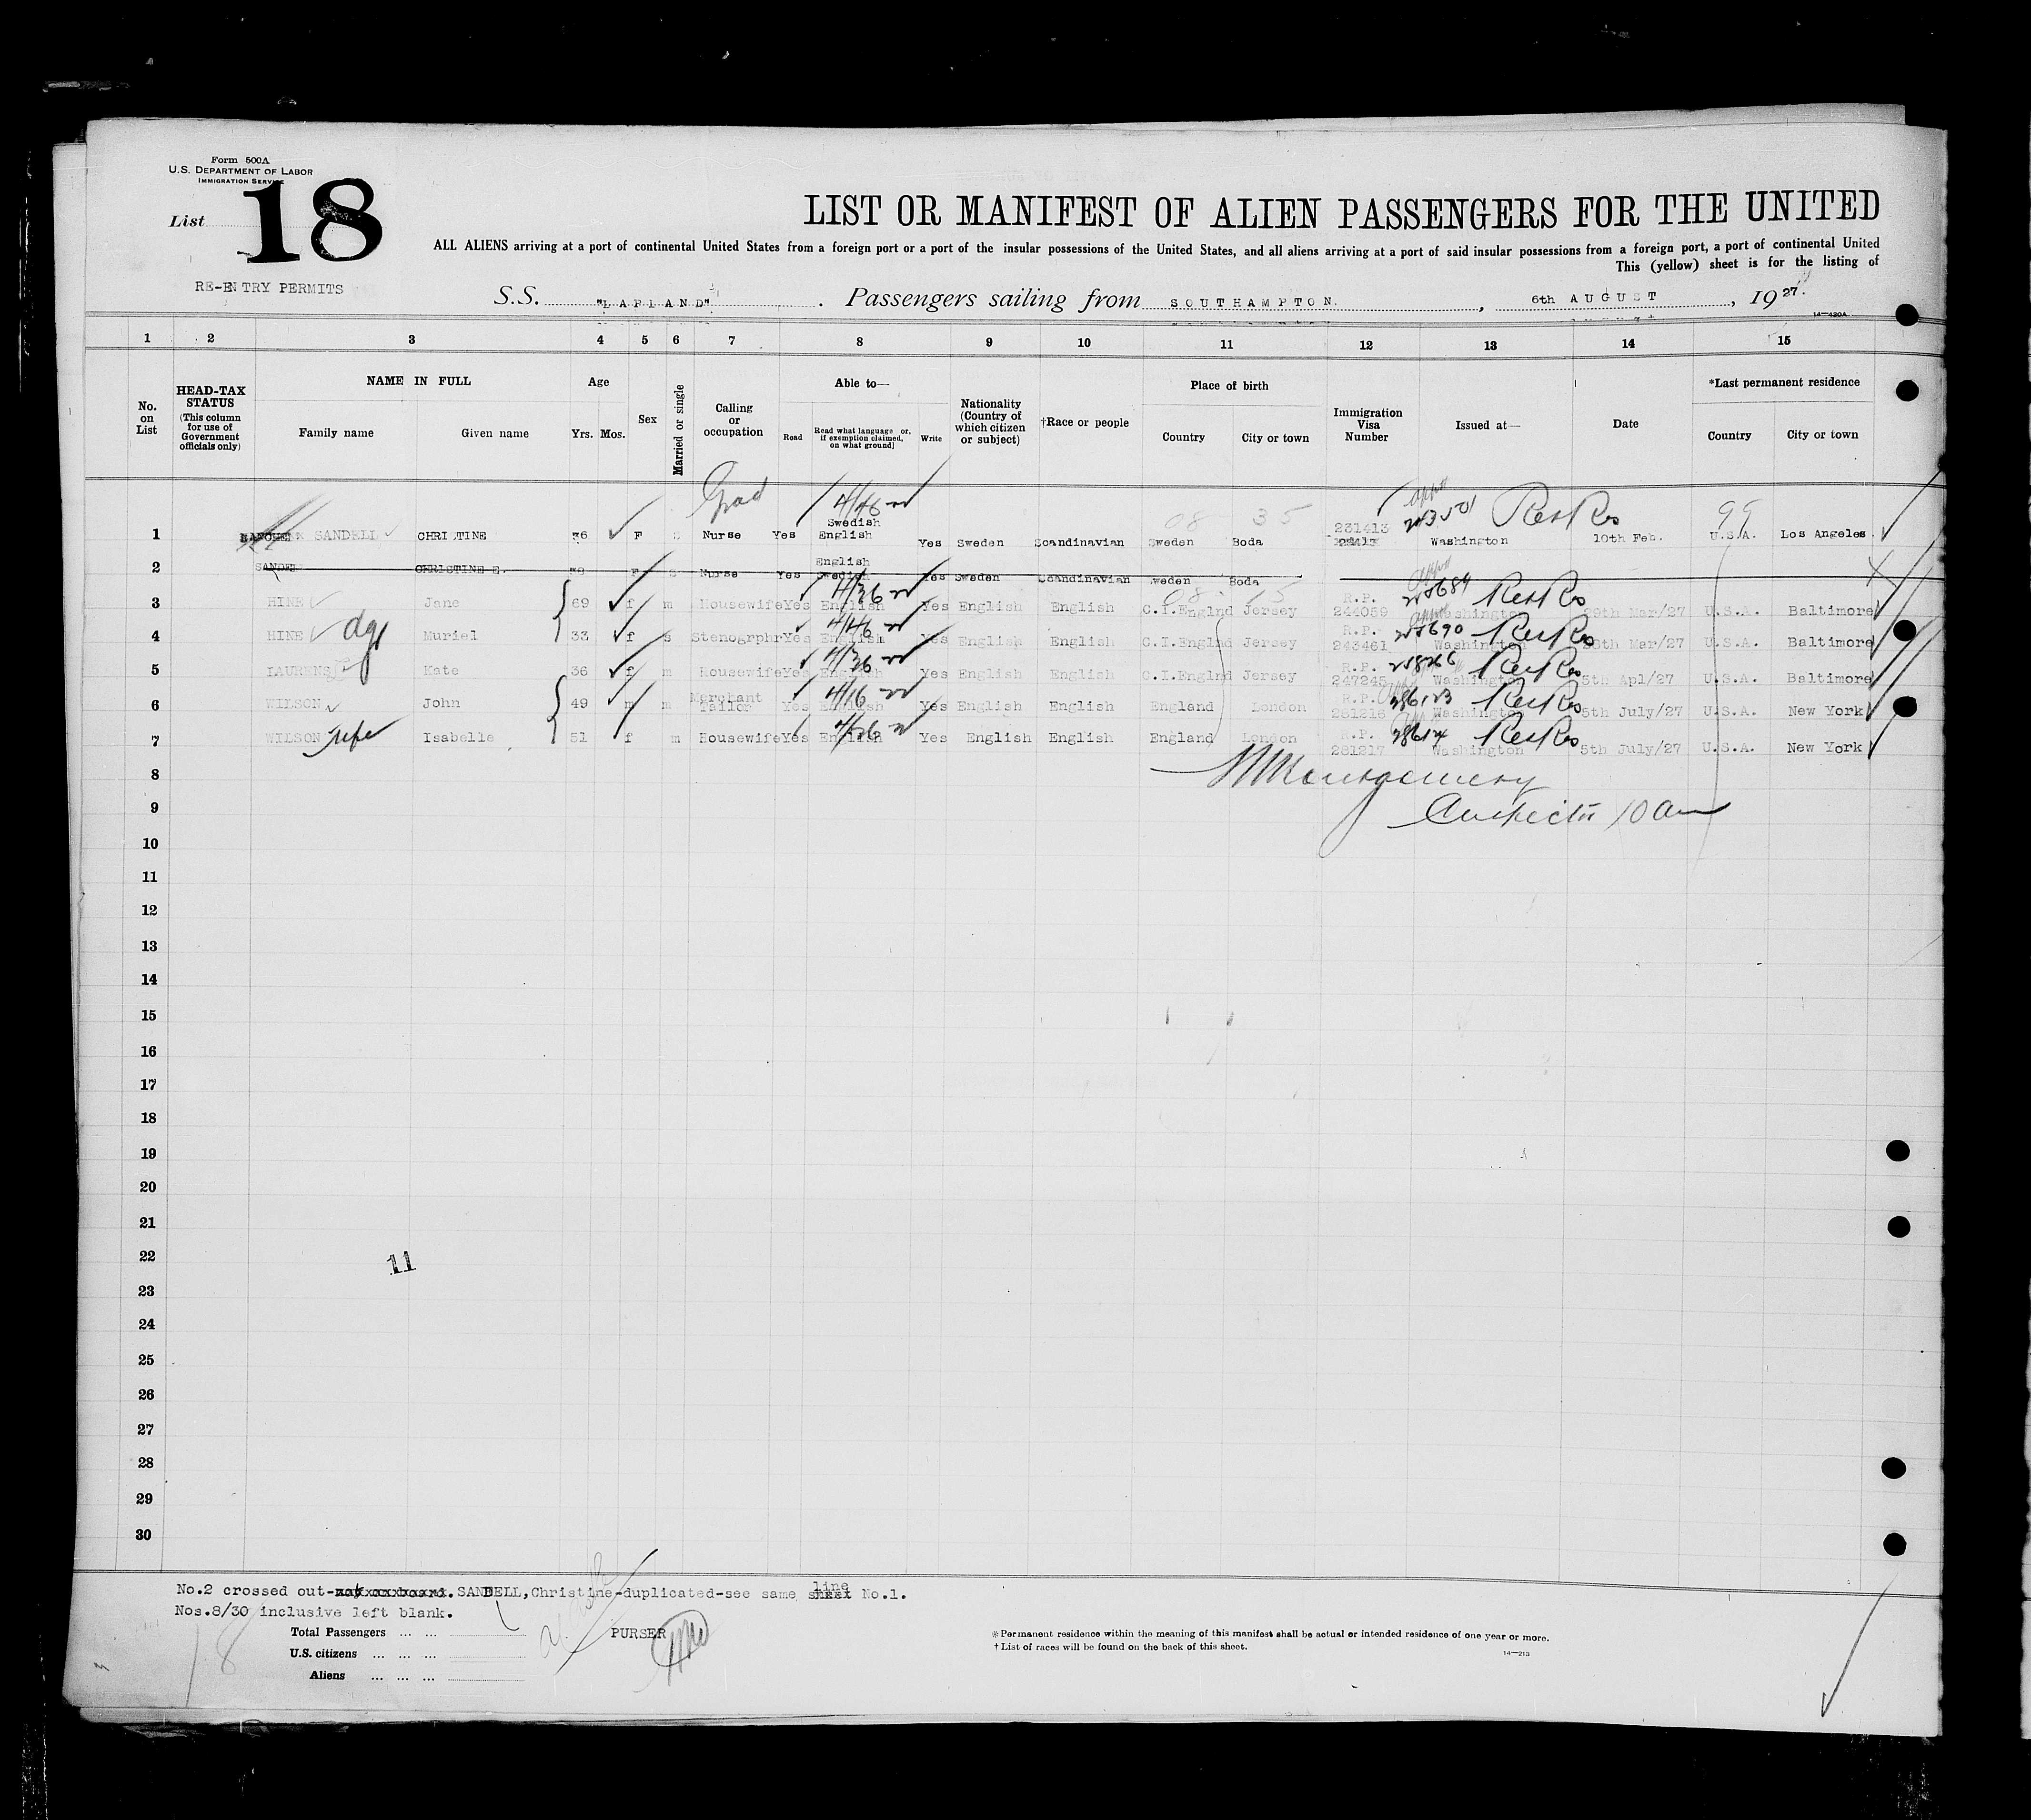 Form 500A
U.S. DEPARTMENT OF LABOR
IMMIGRATION SERVICE
List 18
LIST OR MANIFEST OF ALIEN PASSENGERS FOR THE UNITED
ALL ALIENS arriving at a port of continental United States from a foreign port or a port of the insular possessions of the United States, and all aliens arriving at a port of said insular possessions from a foreign port, a port of continental United
This (yellow) sheet is for the listing of
RE-ENTRY PERMITS
S.S. "LAPLAND". Passengers sailing from SOUTHAMPTON, 6th AUGUST, 1927.
14—430A
1 2 3 4 5 6 7 8 9 10 11 12 13 14 15
No. on List
HEAD-TAX STATUS (This column for use of Government officials only)
NAME IN FULL
Family name Given name
Age
Yrs. Mos.
Sex
Married or single
Calling or occupation
Able to—
Read Read what language or, if exemption claimed, on what ground] Write
Nationality (Country of which citizen or subject)
†Race or people
Place of birth
Country City or town
Immigration Visa Number
Issued at—
Date
*Last permanent residence
Country City or town
Grad
1 SANDELL CHRISTINE 36 F S Nurse Yes Swedish English Yes Sweden Scandinavian Sweden Boda 231413 Washington 10th Feb. U.S.A. Los Angeles
08 35 Ret Res 99
2 SANDEL CHRISTINE E. F S Nurse Yes English Swedish Yes Sweden Scandinavian Sweden Boda
3 HINE Jane 69 f m Housewife Yes English Yes English English C.I.Englnd Jersey R.P. 244059 Washington 29th Mar/27 U.S.A. Baltimore
4 HINE dgr Muriel 33 f s Stenogrphr Yes English Yes English English C.I.Englnd Jersey R.P. 243461 Washington 28th Mar/27 U.S.A. Baltimore
5 LAURENS Kate 36 f m Housewife Yes English Yes English English C.I.Englnd Jersey R.P. 247245 Washington 5th Apl/27 U.S.A. Baltimore
6 WILSON John 49 m m Merchant Tailor Yes English Yes English English England London R.P. 281216 Washington 5th July/27 U.S.A. New York
7 WILSON wife Isabelle 51 f m Housewife Yes English Yes English English England London R.P. 281217 Washington 5th July/27 U.S.A. New York
8
Montgomery
9
10
11
12
13
14
15
16
17
18
19
20
21
22
11
23
24
25
26
27
28
29
30
No.2 crossed out- SANDELL, Christine-duplicated-see same line No.1.
Nos.8/30 inclusive left blank.
Total Passengers ... ...
U.S. citizens ... ... ...
Aliens ... ... ...
PURSER
* Permanent residence within the meaning of this manifest shall be actual or intended residence of one year or more.
† List of races will be found on the back of this sheet.
14—213